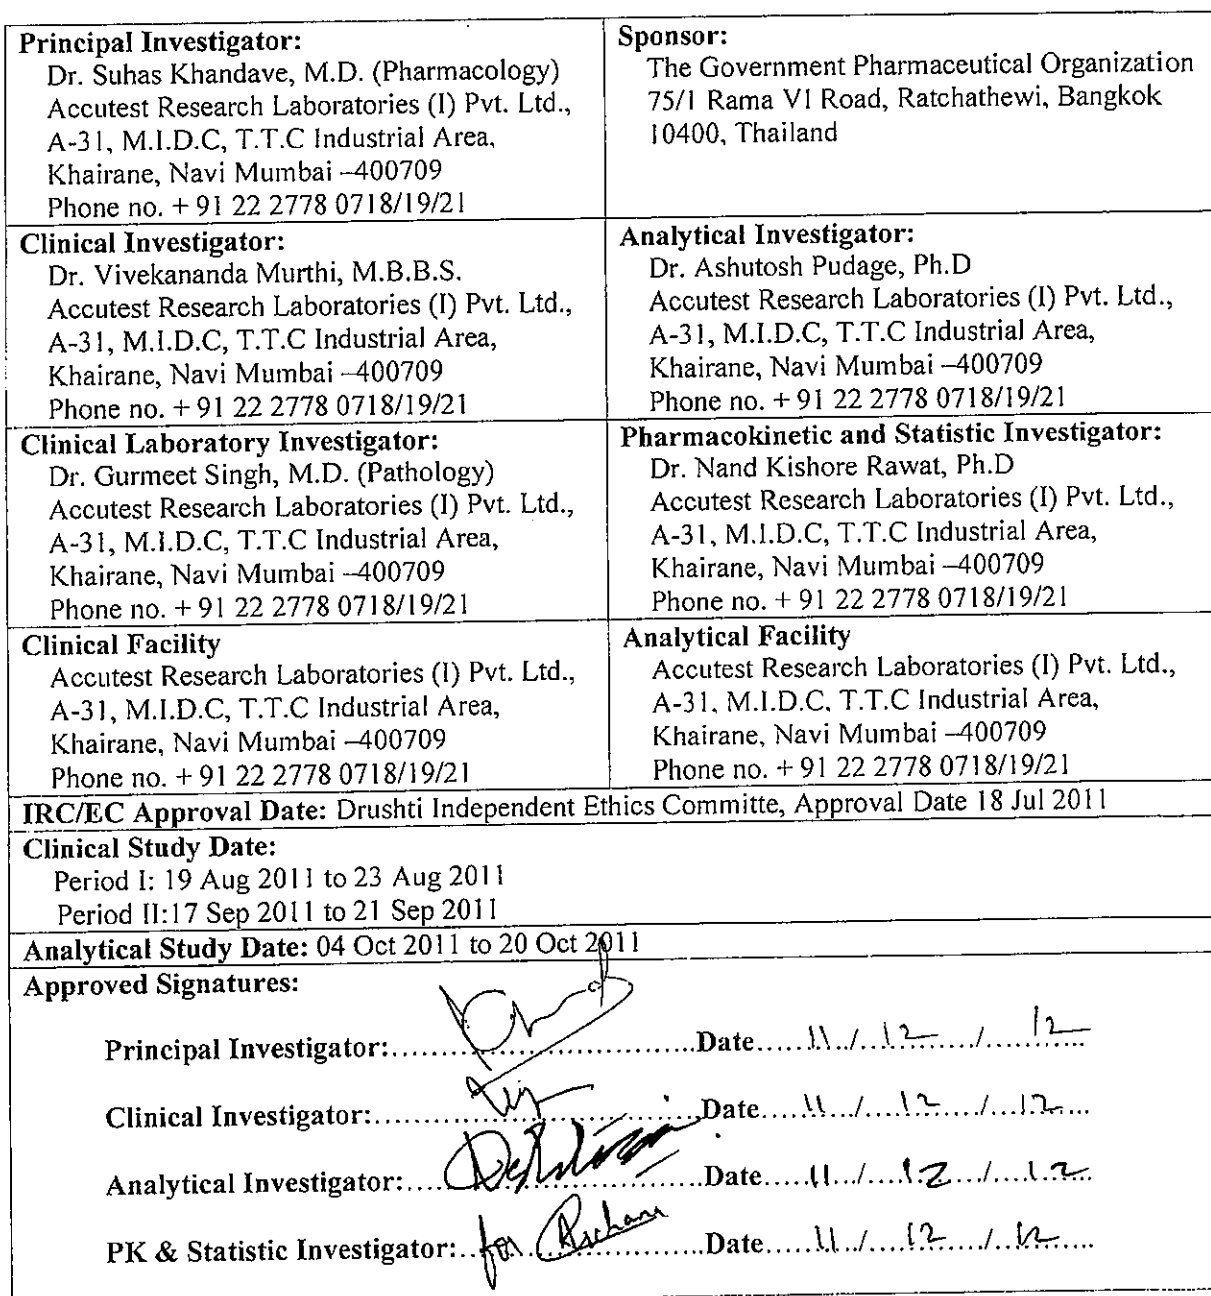 Principal Investigator:
Dr. Suhas Khandave, M.D. (Pharmacology)
Accutest Research Laboratories (I) Pvt. Ltd.,
A-31, M.I.D.C, T.T.C Industrial Area,
Khairane, Navi Mumbai –400709
Phone no. + 91 22 2778 0718/19/21
Sponsor:
The Government Pharmaceutical Organization
75/1 Rama VI Road, Ratchathewi, Bangkok
10400, Thailand
Clinical Investigator:
Dr. Vivekananda Murthi, M.B.B.S.
Accutest Research Laboratories (I) Pvt. Ltd.,
A-31, M.I.D.C, T.T.C Industrial Area,
Khairane, Navi Mumbai –400709
Phone no. + 91 22 2778 0718/19/21
Analytical Investigator:
Dr. Ashutosh Pudage, Ph.D
Accutest Research Laboratories (I) Pvt. Ltd.,
A-31, M.I.D.C, T.T.C Industrial Area,
Khairane, Navi Mumbai –400709
Phone no. + 91 22 2778 0718/19/21
Clinical Laboratory Investigator:
Dr. Gurmeet Singh, M.D. (Pathology)
Accutest Research Laboratories (I) Pvt. Ltd.,
A-31, M.I.D.C, T.T.C Industrial Area,
Khairane, Navi Mumbai –400709
Phone no. + 91 22 2778 0718/19/21
Pharmacokinetic and Statistic Investigator:
Dr. Nand Kishore Rawat, Ph.D
Accutest Research Laboratories (I) Pvt. Ltd.,
A-31, M.I.D.C, T.T.C Industrial Area,
Khairane, Navi Mumbai –400709
Phone no. + 91 22 2778 0718/19/21
Clinical Facility
Accutest Research Laboratories (I) Pvt. Ltd.,
A-31, M.I.D.C, T.T.C Industrial Area,
Khairane, Navi Mumbai –400709
Phone no. + 91 22 2778 0718/19/21
Analytical Facility
Accutest Research Laboratories (I) Pvt. Ltd.,
A-31, M.I.D.C, T.T.C Industrial Area,
Khairane, Navi Mumbai –400709
Phone no. + 91 22 2778 0718/19/21
IRC/EC Approval Date: Drushti Independent Ethics Committe, Approval Date 18 Jul 2011
Clinical Study Date:
Period I: 19 Aug 2011 to 23 Aug 2011
Period II:17 Sep 2011 to 21 Sep 2011
Analytical Study Date: 04 Oct 2011 to 20 Oct 2011
Approved Signatures:
Principal Investigator:..............................Date.....11../....12...../....12....
Clinical Investigator:..............................Date....11../....12..../....12...
Analytical Investigator:..............................Date.....11../....12..../....12..
PK & Statistic Investigator:..for Archana..............Date.....11../....12..../..12......